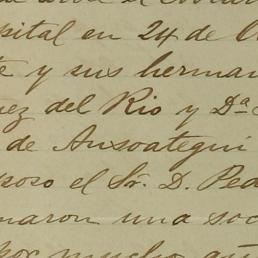 pital en 24 de O
e y sus herma
ez del Rio y Dª
de Ansoategui
poso el Sr. D. Ped
maron una soc
por mucho